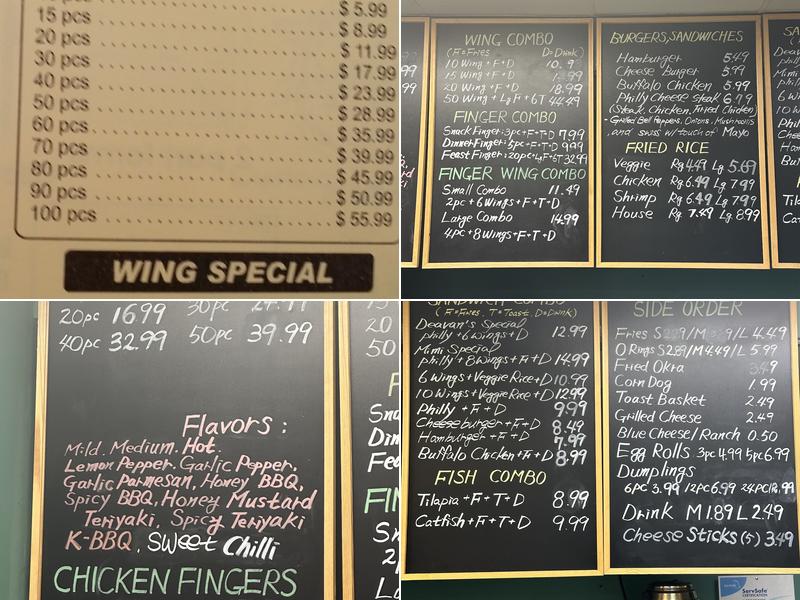 $ 5.99
15 pcs $ 8.99
20 pcs $ 11.99
30 pcs $ 17.99
40 pcs $ 23.99
50 pcs $ 28.99
60 pcs $ 35.99
70 pcs $ 39.99
80 pcs $ 45.99
90 pcs $ 50.99
100 pcs $ 55.99
WING SPECIAL
WING COMBO
(F=Fries D=Drink)
10 Wing + F + D
15 Wing + F + D
20 Wing + F + D 18.99
50 Wing + Lg F + 6T 44.49
FINGER COMBO
Snack Finger: 3pc + F + T + D 7.99
Dinner Finger: 5pc + F + T + D 9.99
Feast Finger: 20pc + Lg F + 6T 32.99
FINGER WING COMBO
Small Combo 11.49
2pc + 6 Wings + F + T + D
Large Combo 14.99
4pc + 8 Wings + F + T + D
BURGERS, SANDWICHES
Hamburger 5.49
Cheese Burger 5.99
Buffalo Chicken 5.99
Philly Cheese Steak 6.79
(Steak, Chicken, Fried Chicken)
- Grilled Bell Peppers, Onions, Mushrooms
and swiss w/ touch of Mayo
FRIED RICE
Veggie Rg 4.49 Lg 5.69
Chicken Rg 6.49 Lg 7.99
Shrimp Rg 6.49 Lg 7.99
House Rg 7.49 Lg 8.99
20pc 16.99 30pc
40pc 32.99 50pc 39.99
Flavors :
Mild. Medium. Hot.
Lemon Pepper. Garlic Pepper,
Garlic Parmesan, Honey BBQ,
Spicy BBQ, Honey Mustard
Teriyaki, Spicy Teriyaki
K-BBQ, Sweet Chilli
CHICKEN FINGERS
SANDWICH COMBO
(F=Fries, T=Toast, D=Drink)
Deavan's Special 12.99
philly + 6 wings + D
Mimi Special
philly + 8 Wings + F + D 14.99
6 Wings + Veggie Rice + D 10.99
10 Wings + Veggie Rice + D 12.99
Philly + F + D 9.99
Cheeseburger + F + D 8.49
Hamburger + F + D 7.99
Buffalo Chicken + F + D 8.99
FISH COMBO
Tilapia + F + T + D 8.99
Catfish + F + T + D 9.99
SIDE ORDER
Fries S /M /L 4.49
O Rings S 2.89/M 4.49/L 5.99
Fried Okra 3.49
Corn Dog 1.99
Toast Basket 2.49
Grilled Cheese 2.49
Blue Cheese/Ranch 0.50
Egg Rolls 3pc 4.99 5pc 6.99
Dumplings
6PC 3.99 12PC 6.99 24PC 12.99
Drink M 1.89 L 2.49
Cheese Sticks (5) 3.49
ServSafe
CERTIFICATION